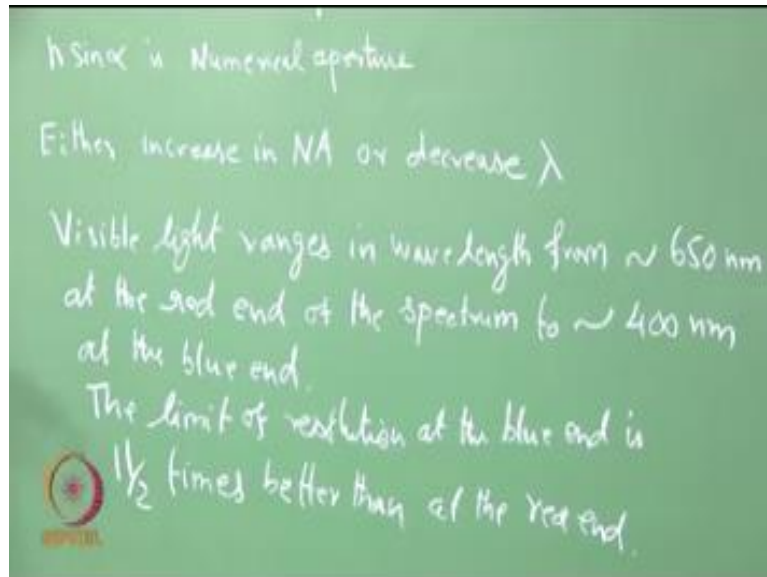 n sinα is Numerical aperture
Either increase in NA or decrease λ
Visible light ranges in wavelength from ~ 650 nm
at the red end of the spectrum to ~ 400 nm
at the blue end.
The limit of resolution at the blue end is
1½ times better than at the red end.
NPTEL